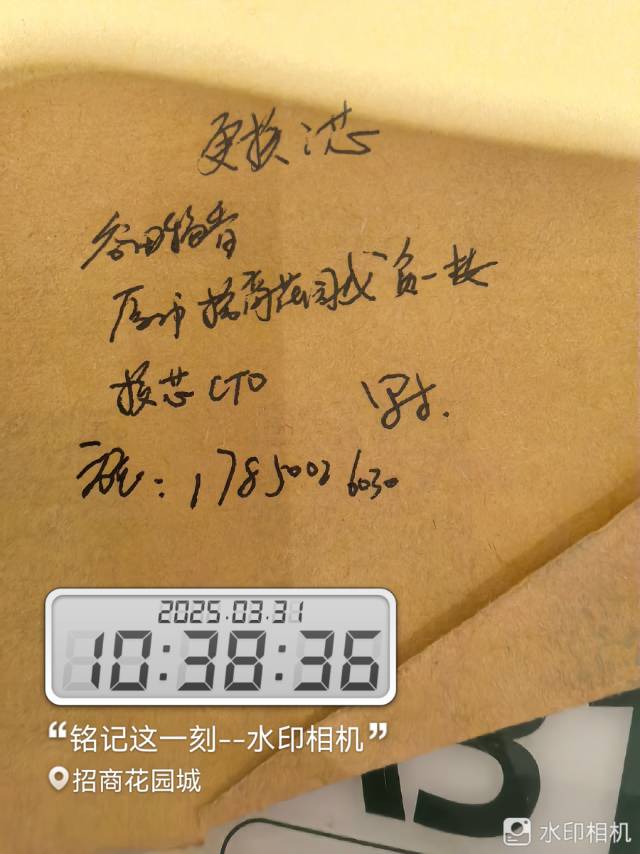 更换:芯
谷田稻香
厦门招商花园城负一楼
换芯CTO
一砣:17850026030
2025.03.31
10:38:36
“铭记这一刻--水印相机”
招商花园城
水印相机